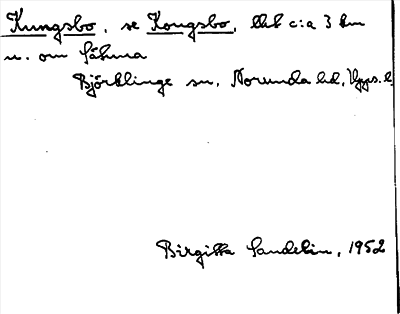 Kungsbo, se Kongsbo, ct c:a 3 km
n. om Sätuna
Björklinge sn, Norunda hd, Upps. l.
Birgitta Sandelin, 1952